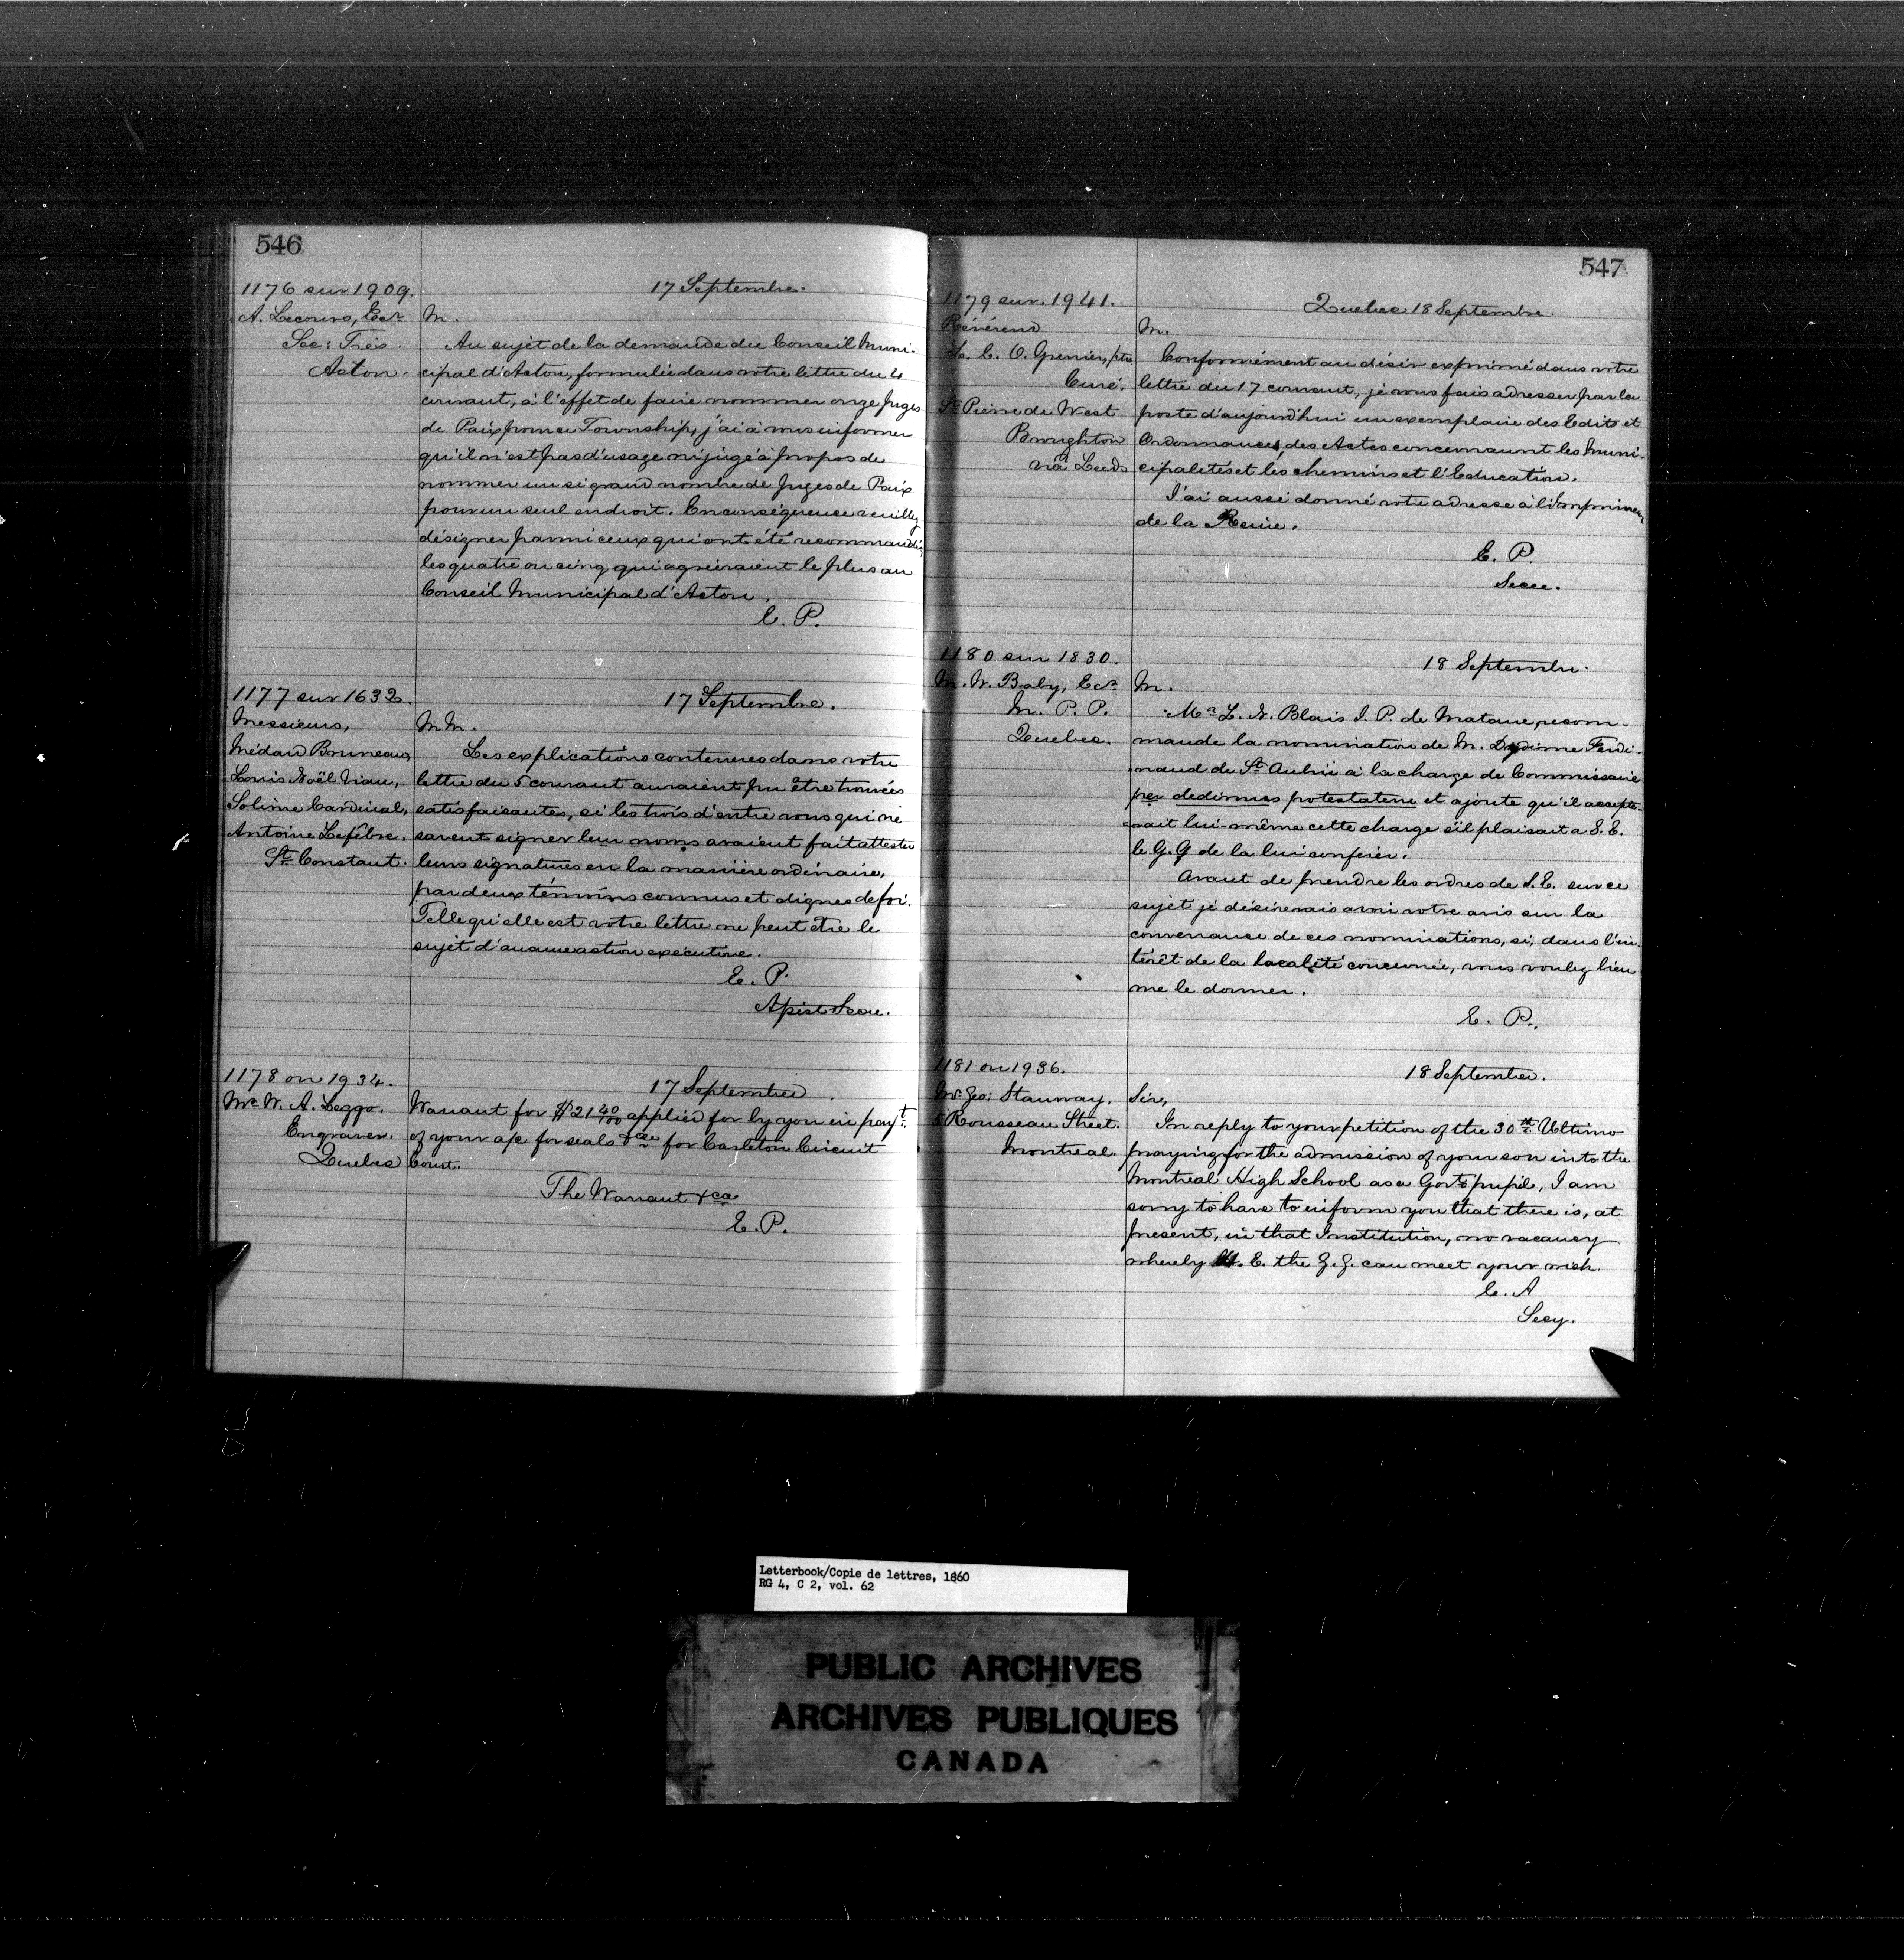 546
1176 sur 1909.
A. Lecours, Ecr
Sec: Trés.
Acton.
17 Septembre.
M.
Au sujet de la demande du Conseil Muni-
cipal d'Acton, formulée dans votre lettre du 4
courant, à l'effet de faire nommer onze Juges
de Paix pour ce Township, j'ai à vous informer
qu'il n'est pas d'usage ni jugé à propos de
nommer un si grand nombre de Juges de Paix
pour un seul endroit. En conséquence veuillez
désigner parmi ceux qui ont été recommandés,
les quatre ou cinq qui agréeraient le plus au
Conseil Municipal d'Acton.
E. P.
1177 sur 1632.
Messieurs,
Médard Bruneau,
Louis Noël Viau,
Solime Cardinal,
Antoine Lefébre.
St Constant.
17 Septembre.
M M.
Les explications contenues dans votre
lettre du 5 courant auraient pu être trouvées
satisfaisantes, si les trois d'entre vous qui ne
savent signer leur noms avaient fait attester
leurs signatures en la manière ordinaire,
par deux témoins connus et dignes de foi.
Telle qu'elle est votre lettre ne peut être le
sujet d'aucune action exécutive.
E. P.
Assist Secre.
1178 on 1934.
Mr W. A. Leggo.
Engraver.
Quebec
17 September.
Warrant for $21 40/100 applied for by you in payt.
of your a/c for seals &ca for Carleton Circuit
Court.
The Warrant &ca
E. P.
547
1179 sur. 1941.
Révérend
L. C. O. Grenier, ptre
Curé.
St Pierre de West
Broughton
viâ Leeds
Quebec 18 Septembre.
M.
Conformément au désir exprimé dans votre
lettre du 17 courant, je vous fais adresser par la
poste d'aujourd'hui un exemplaire des Edits et
Ordonnances, des Actes concernant les Muni-
cipalités et les chemins et l'Education.
J'ai aussi donné votre adresse à l'Imprimeur
de la Reine.
E. P.
Secre.
1180 sur 1830.
M. W. Baby, Ecr
M. P. P.
Quebec.
18 Septembre.
M.
Mr L. N. Blais J. P. de Matane, recom-
mande la nomination de M. Dydime Ferdi-
nand de St Aubin à la charge de Commissaire
per dedimus potestatem et ajoute qu'il accepte-
=rait lui-même cette charge s'il plaisait a S. E.
le G. G de la lui conférer.
Avant de prendre les ordres de S. E. sur ce
sujet je désirerais avoir votre avis sur la
convenance de ces nominations, si, dans l'in-
térêt de la localité concernée, vous voulez bien
me le donner.
E. P.
1181 on 1936.
Mr Geo: Stanway.
5 Rousseau Street.
Montreal.
18 September.
Sir,
In reply to your petition of the 30th Ultimo
praying for the admission of your son into the
Montreal High School as a Govt pupil, I am
sorry to have to inform you that there is, at
present, in that Institution, no vacancy
whereby H. E. the G. G. can meet your wish.
C. A
Secy.
Letterbook/Copie de lettres, 1860
RG 4, C 2, vol. 62
PUBLIC ARCHIVES
ARCHIVES PUBLIQUES
CANADA